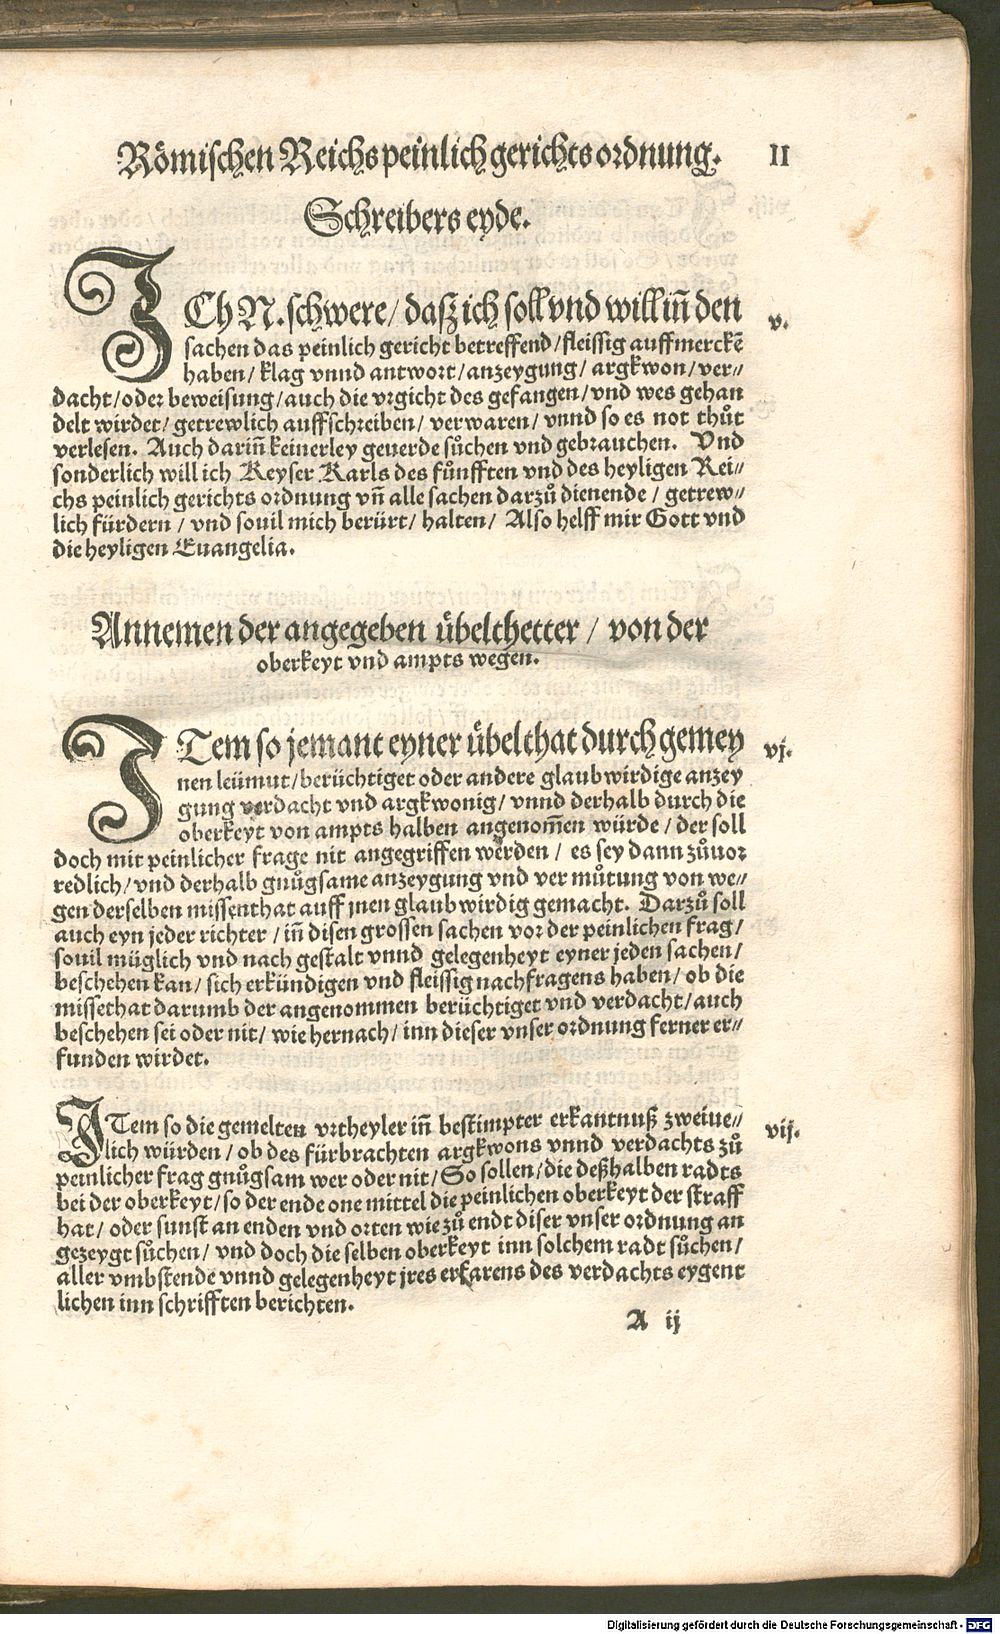 Römischen Reichs peinlich gerichts ordnung. II
Schreibers eyde.
ICh N. schwere / daß ich soll vnd will iñ den v.
sachen das peinlich gericht betreffend / fleissig auffmerckē
haben / klag vnnd antwort / anzeygung / argkwon / ver⸗
dacht / oder beweisung / auch die vrgicht des gefangen / vnd wes gehan
delt wirdet / getrewlich auffschreiben / verwaren / vnnd so es not thůt
verlesen. Auch dariñ keinerley geuerde sůchen vnd gebrauchen. Vnd
sonderlich will ich Keyser Karls des fůnfften vnd des heyligen Rei⸗
chs peinlich gerichts ordnung vñ alle sachen darzů dienende / getrew⸗
lich fürdern / vnd souil mich berürt / halten / Also helff mir Gott vnd
die heyligen Euangelia.
Annemen der angegeben übelthetter / von der
oberkeyt vnd ampts wegen.
ITem so jemant eyner übelthat durch gemey vj.
nen leümut / berüchtiget oder andere glaubwirdige anzey
gung verdacht vnd argkwonig / vnnd derhalb durch die
oberkeyt von ampts halben angenom̄en würde / der soll
doch mit peinlicher frage nit angegriffen werden / es sey dann zůuor
redlich / vnd derhalb gnůgsame anzeygung vnd ver můtung von we⸗
gen derselben missenthat auff jnen glaubwirdig gemacht. Darzů soll
auch eyn jeder richter / iñ disen grossen sachen vor der peinlichen frag /
souil müglich vnd nach gestalt vnnd gelegenheyt eyner jeden sachen /
beschehen kan / sich erkündigen vnd fleissig nachfragens haben / ob die
missethat darumb der angenommen berüchtiget vnd verdacht / auch
beschehen sei oder nit / wie hernach / inn dieser vnser ordnung ferner er⸗
funden wirdet.
ITem so die gemelten vrtheyler iñ bestimpter erkantnuß zweiue⸗ vij.
lich würden / ob des fürbrachten argkwons vnnd verdachts zů
peinlicher frag gnůgsam wer oder nit / So sollen / die deßhalben radts
bei der oberkeyt / so der ende one mittel die peinlichen oberkeyt der straff
hat / oder sunst an enden vnd orten wie zů endt diser vnser ordnung an
gezeygt sůchen / vnd doch die selben oberkeyt inn solchem radt sůchen /
aller vmbstende vnnd gelegenheyt jres erfarens des verdachts eygent
lichen inn schrifften berichten.
A ij
Digitalisierung gefördert durch die Deutsche Forschungsgemeinschaft - DFG